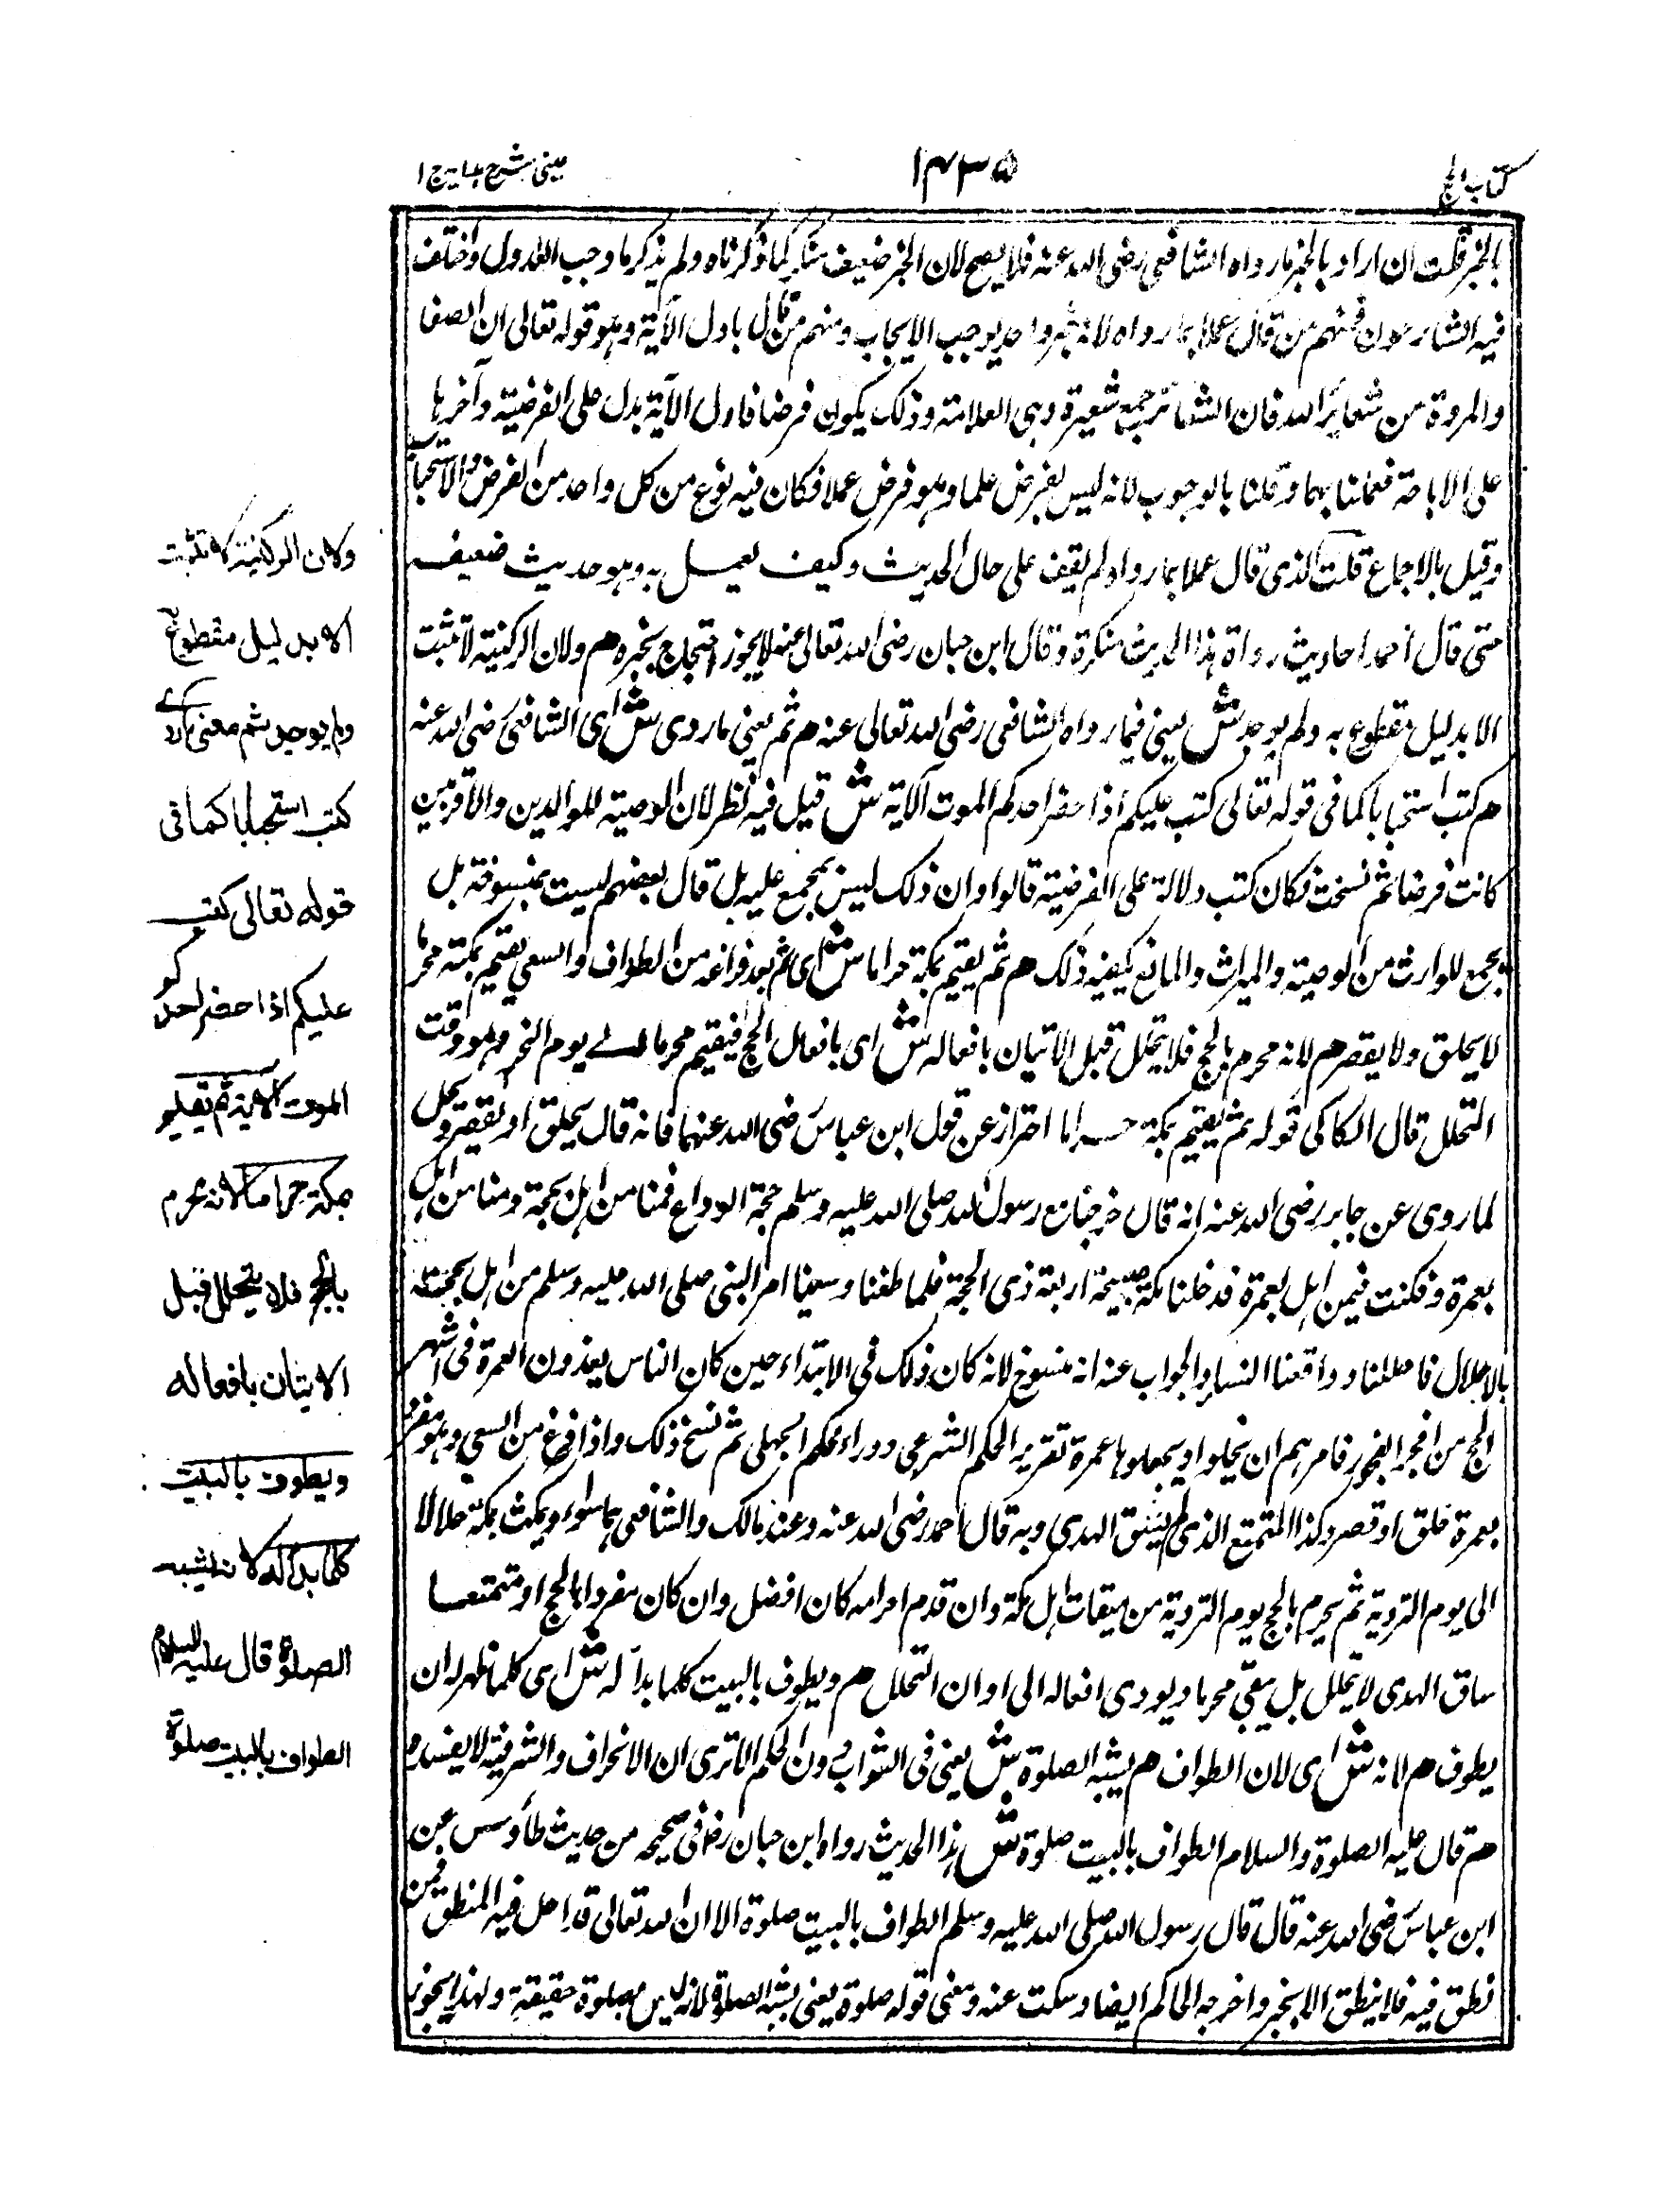 كتاب الحج
١٤٣٥
عينى شرح هدايه ج ١
بالخبر قلت ان اراد بالخبر ما رواه الشافعى رضى الله عنه فلا يصح لان الخبر ضعيف منكر كما ذكرناه ولم يذكر ما وجب العدول واختلف
فيه الشارحون فمنهم من قال عملا بما رواه لانه خبر واحد يوجب الايجاب ومنهم من قال باول الآية وهو قوله تعالى ان الصفا
والمروة من شعائر الله فان الشعائر جمع شعيرة وهى العلامة وذلك يكون فرضا فاول الآية يدل على الفرضية وآخرها
على الاباحة فعملنا بهما وقلنا بالوجوب لانه ليس بفرض علما وهو فرض عملا فكان فيه نوع من كل واحد من الفرض والاستحباب
وقيل بالاجماع قلت الذى قال عملا بما رواه لم يقف على حال الحديث وكيف يعمل به وهو حديث ضعيف
حتى قال احمد احاديث رواة هذا الحديث منكرة وقال ابن حبان رضى الله تعالى عنه لا يجوز احتجاج بخبره هم ولان الركنية لا تثبت
الا بدليل مقطوع به ولم يوجد ش يعنى فيما رواه الشافعى رضى الله تعالى عنه هم ثم معنى ما روى ش اى الشافعى رضى الله عنه
هم كتب استحبابا كما فى قوله تعالى كتب عليكم اذا حضر احدكم الموت الآية ش قيل فيه نظر لان الوصية للوالدين والاقربين
كانت فرضا ثم نسخت فكان كتب دلالة على الفرضية قالوا وان ذلك ليس بمجمع عليه بل قال بعضهم ليست بمنسوخة بل
يجمع للوارث من الوصية والميراث والمانع يكفيه ذلك هم ثم يقيم بمكة حراما ش اى ثم بعد فراغه من الطواف والسعى يقيم بمكة محرما
لا يحلق ولا يقصر هم لانه محرم بالحج فلا يتحلل قبل الاتيان بافعاله ش اى بافعال الحج فيقيم محرما الى يوم النحر وهو وقت
التحلل قال الكاكى قوله ثم يقيم بمكة حراما احتراز عن قول ابن عباس رضى الله عنهما فانه قال يحلق او يقصر ويحل
لما روى عن جابر رضى الله عنه انه قال خرجنا مع رسول الله صلى الله عليه وسلم حجة الوداع فمنا من اهل بحجة ومنا من اهل
بعمرة وفكنت فيمن اهل بعمرة فدخلنا مكة صبيحة اربعة ذى الحجة فلما طفنا وسعينا امر النبى صلى الله عليه وسلم من اهل بحجة
بالاحلال فاحللنا وواقعنا النساء والجواب عنه انه منسوخ لانه كان ذلك فى الابتداء حين كان الناس يعدون العمرة فى اشهر
الحج من افجر الفجور فامرهم ان يحلوا ويجعلوها عمرة تقرير الحكم الشرعى ورد الحكم الجهلى ثم نسخ ذلك واذا فرغ من السعى وهو مفرد
بعمرة حلق او قصر وكذا المتمتع الذى لم يسق الهدى وبه قال احمد رضى الله عنه وعند مالك والشافعى هما سواء ويمكث بمكة حلالا
الى يوم التروية ثم يحرم بالحج يوم التروية من ميقات اهل مكة وان قدم احرامه كان افضل وان كان مفردا بالحج او متمتعا
ساق الهدى لا يتحلل بل يبقى محرما ويودى افعاله الى اوان التحلل هم ويطوف بالبيت كلما بدأ له ش اى كلما ظهر له ان
يطوف هم لانه ش اى لان الطواف هم يشبه الصلوة ش يعنى فى الثواب دون الحكم الا ترى ان الانحراف والشرقية لا يفسده
هم قال عليه الصلوة والسلام الطواف بالبيت صلوة ش هذا الحديث رواه ابن حبان رض فى صحيحه من حديث طاؤس عن
ابن عباس رضى الله عنه قال قال رسول الله صلى الله عليه وسلم الطواف بالبيت صلوة الا ان الله تعالى قد احل فيه المنطق فمن
نطق فيه فلا ينطق الا بخير واخرجه الحاكم ايضا وسكت عنه ومعنى قوله صلوة يعنى يشبه الصلوة لانه ليس بصلوة حقيقة ولهذا يجوز
ولان الركنية لا تثبت
الا بدليل مقطوع
ولم يوجد ثم معنى ما روى
كتب استحبابا كما فى
قوله تعالى كتب
عليكم اذا حضر احدكم
الموت الآية ثم يقيم
بمكة حراما لانه محرم
بالحج فلا يتحلل قبل
الاتيان بافعاله
ويطوف بالبيت
كلما بدأ له لانه يشبه
الصلوة قال عليه السلام
الطواف بالبيت صلوة